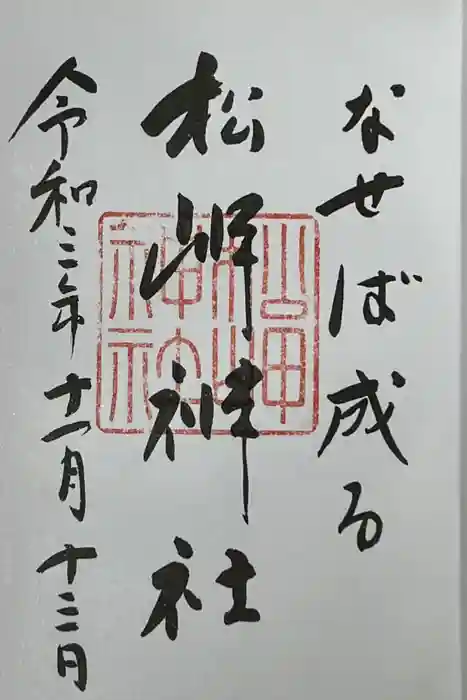 なせば成る
松岬神社
令和三年十一月十三日
松岬神社